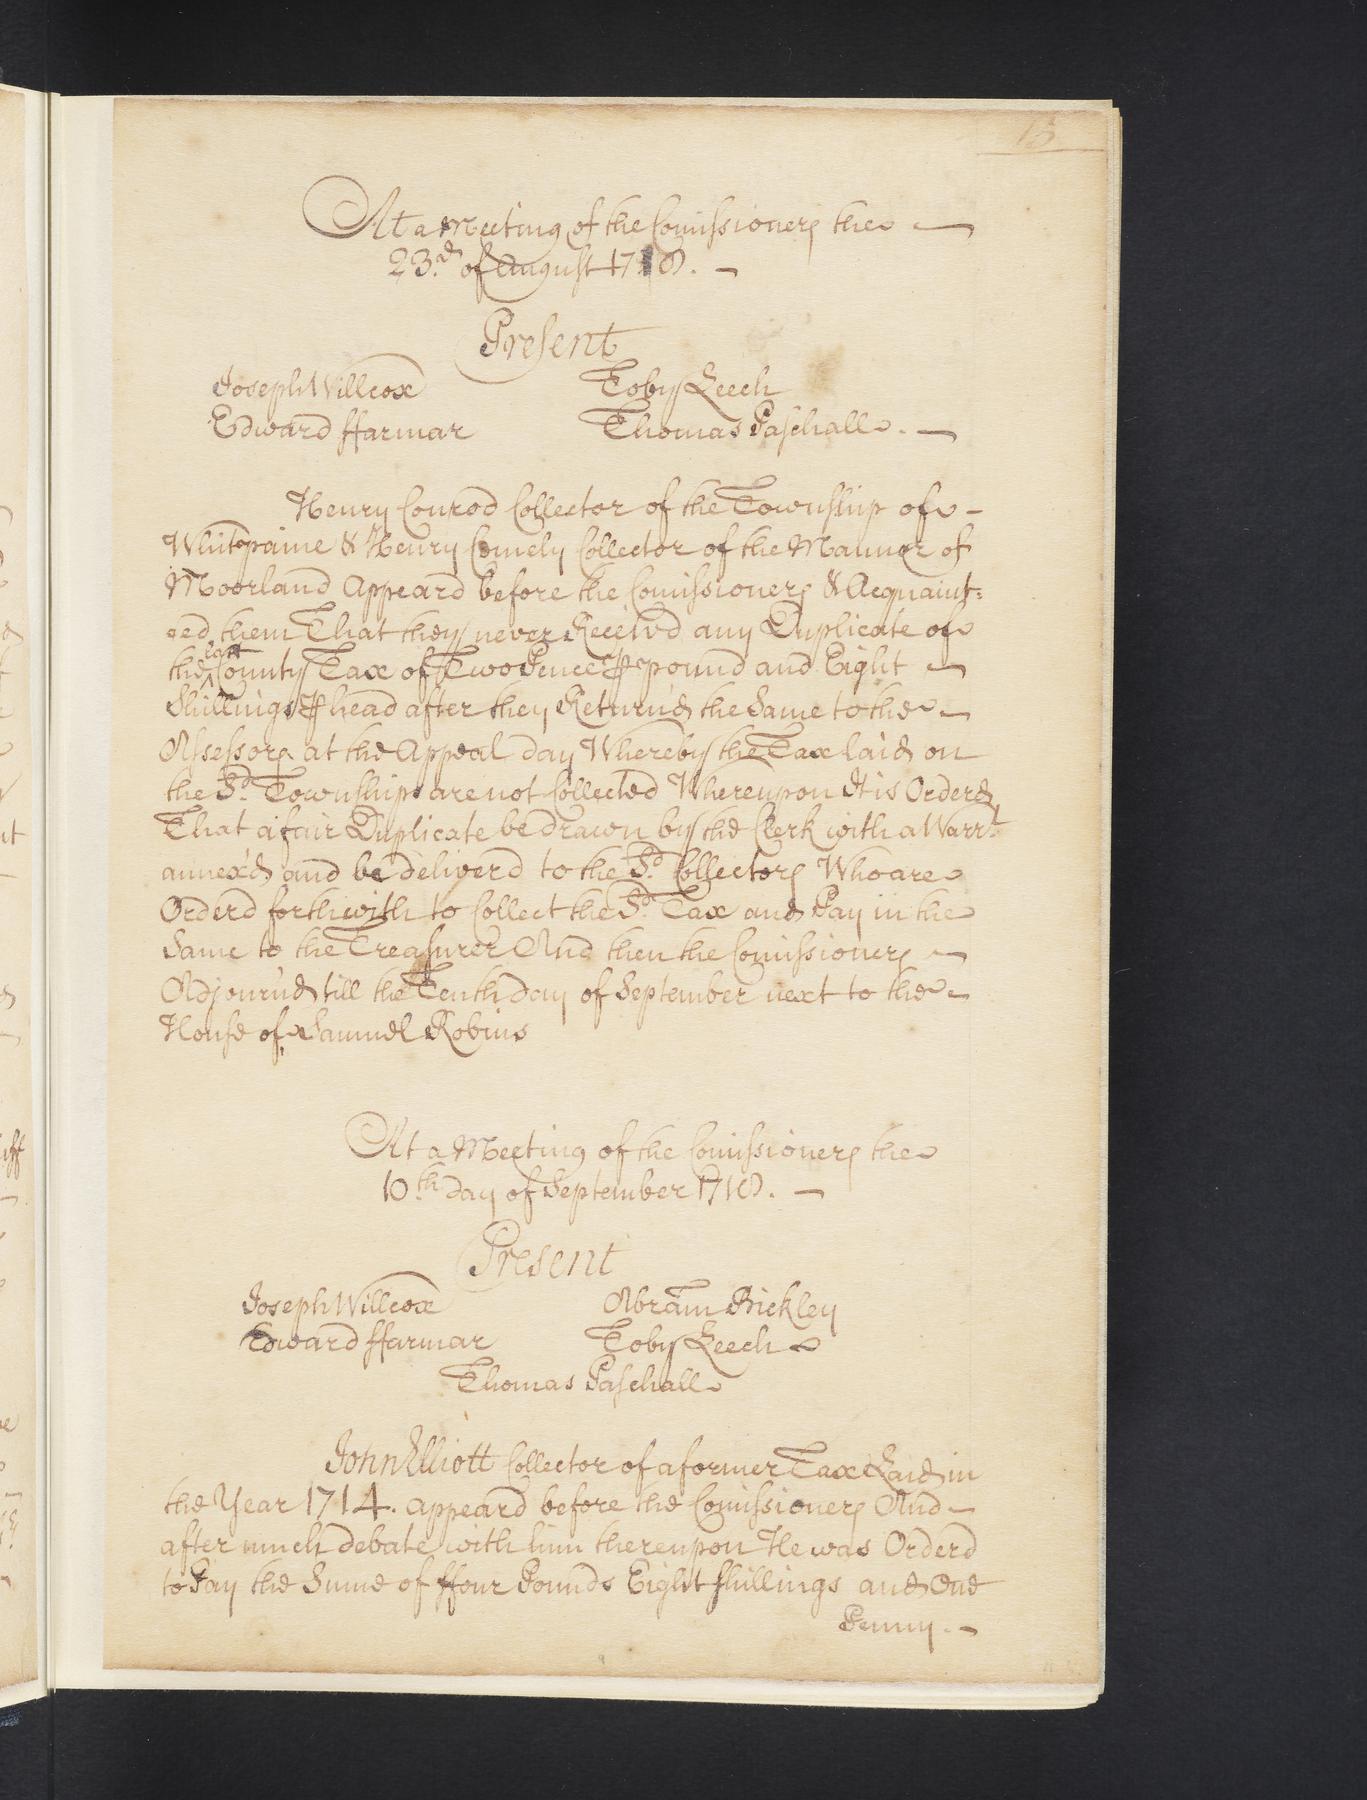 13
At a Meeting of the Comissioners the
23.d of August 1718. –
Present
Joseph Willcox Toby Leech
Edward ffarmar Thomas Paschall. –
Henry Conrod Collector of the Township of –
Whitepaine & Henry Comely Collector of the Mannor of
Moorland Appeard before the Comissioners & Acquaint=
=ed them That they never Receivd any Duplicate of
the last County Tax of Two Pence ⅌ pound and Eight –
Shillings ⅌ head after they Return'd the Same to the –
Assessors at the Appeal day Whereby the Tax laid on
the Sd. Townships are not Collected Whereupon It is Orderd
That a fair Duplicate be drawn by the Clerk with a Warrt.
annex'd and be deliverd to the Sd. Collectors Who are
Orderd forthwith to Collect the Sd. Tax and Pay in the
Same to the Treasurer And then the Comissioners –
Adjourn'd till the Tenth day of September next to the –
House of Samuel Robins
At a Meeting of the Comissioners the
10.th day of September 1718. –
Present
Joseph Willcox Abram Bickley
Edward ffarmar Toby Leech
Thomas Paschall
John Elliott Collector of a former Tax Laid in
the Year 1714. appeard before the Comissioners And –
after much debate with him thereupon He was Orderd
to Pay the Sume of ffour Pounds Eight shillings and One
Penny. –